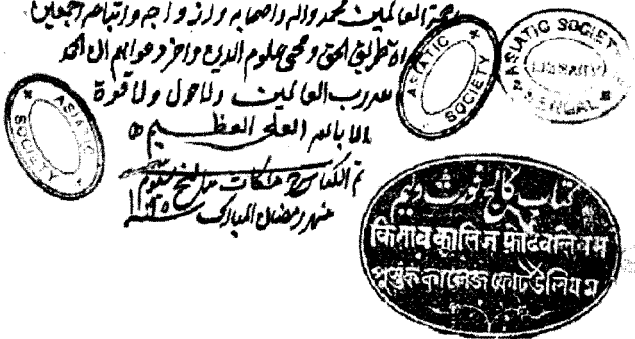 العالمين محمد واله واصحابه وازواجه واتباعه اجمعين
طريق الحق ومحي علوم الدين واخر دعواهم ان الحمد
لله رب العالمين ولا حول ولا قوة
الا بالله العلي العظيم
تم الكتاب
شهر رمضان المبارك
ASIATIC SOCIETY
ASIATIC SOCIETY
ASIATIC SOCIETY
LIBRARY
BENGAL
کتاب کالج فورث ولیم
किताब कालिज फोर्टवलियम
পুস্তক কালেজ ফোর্টউলিয়ম